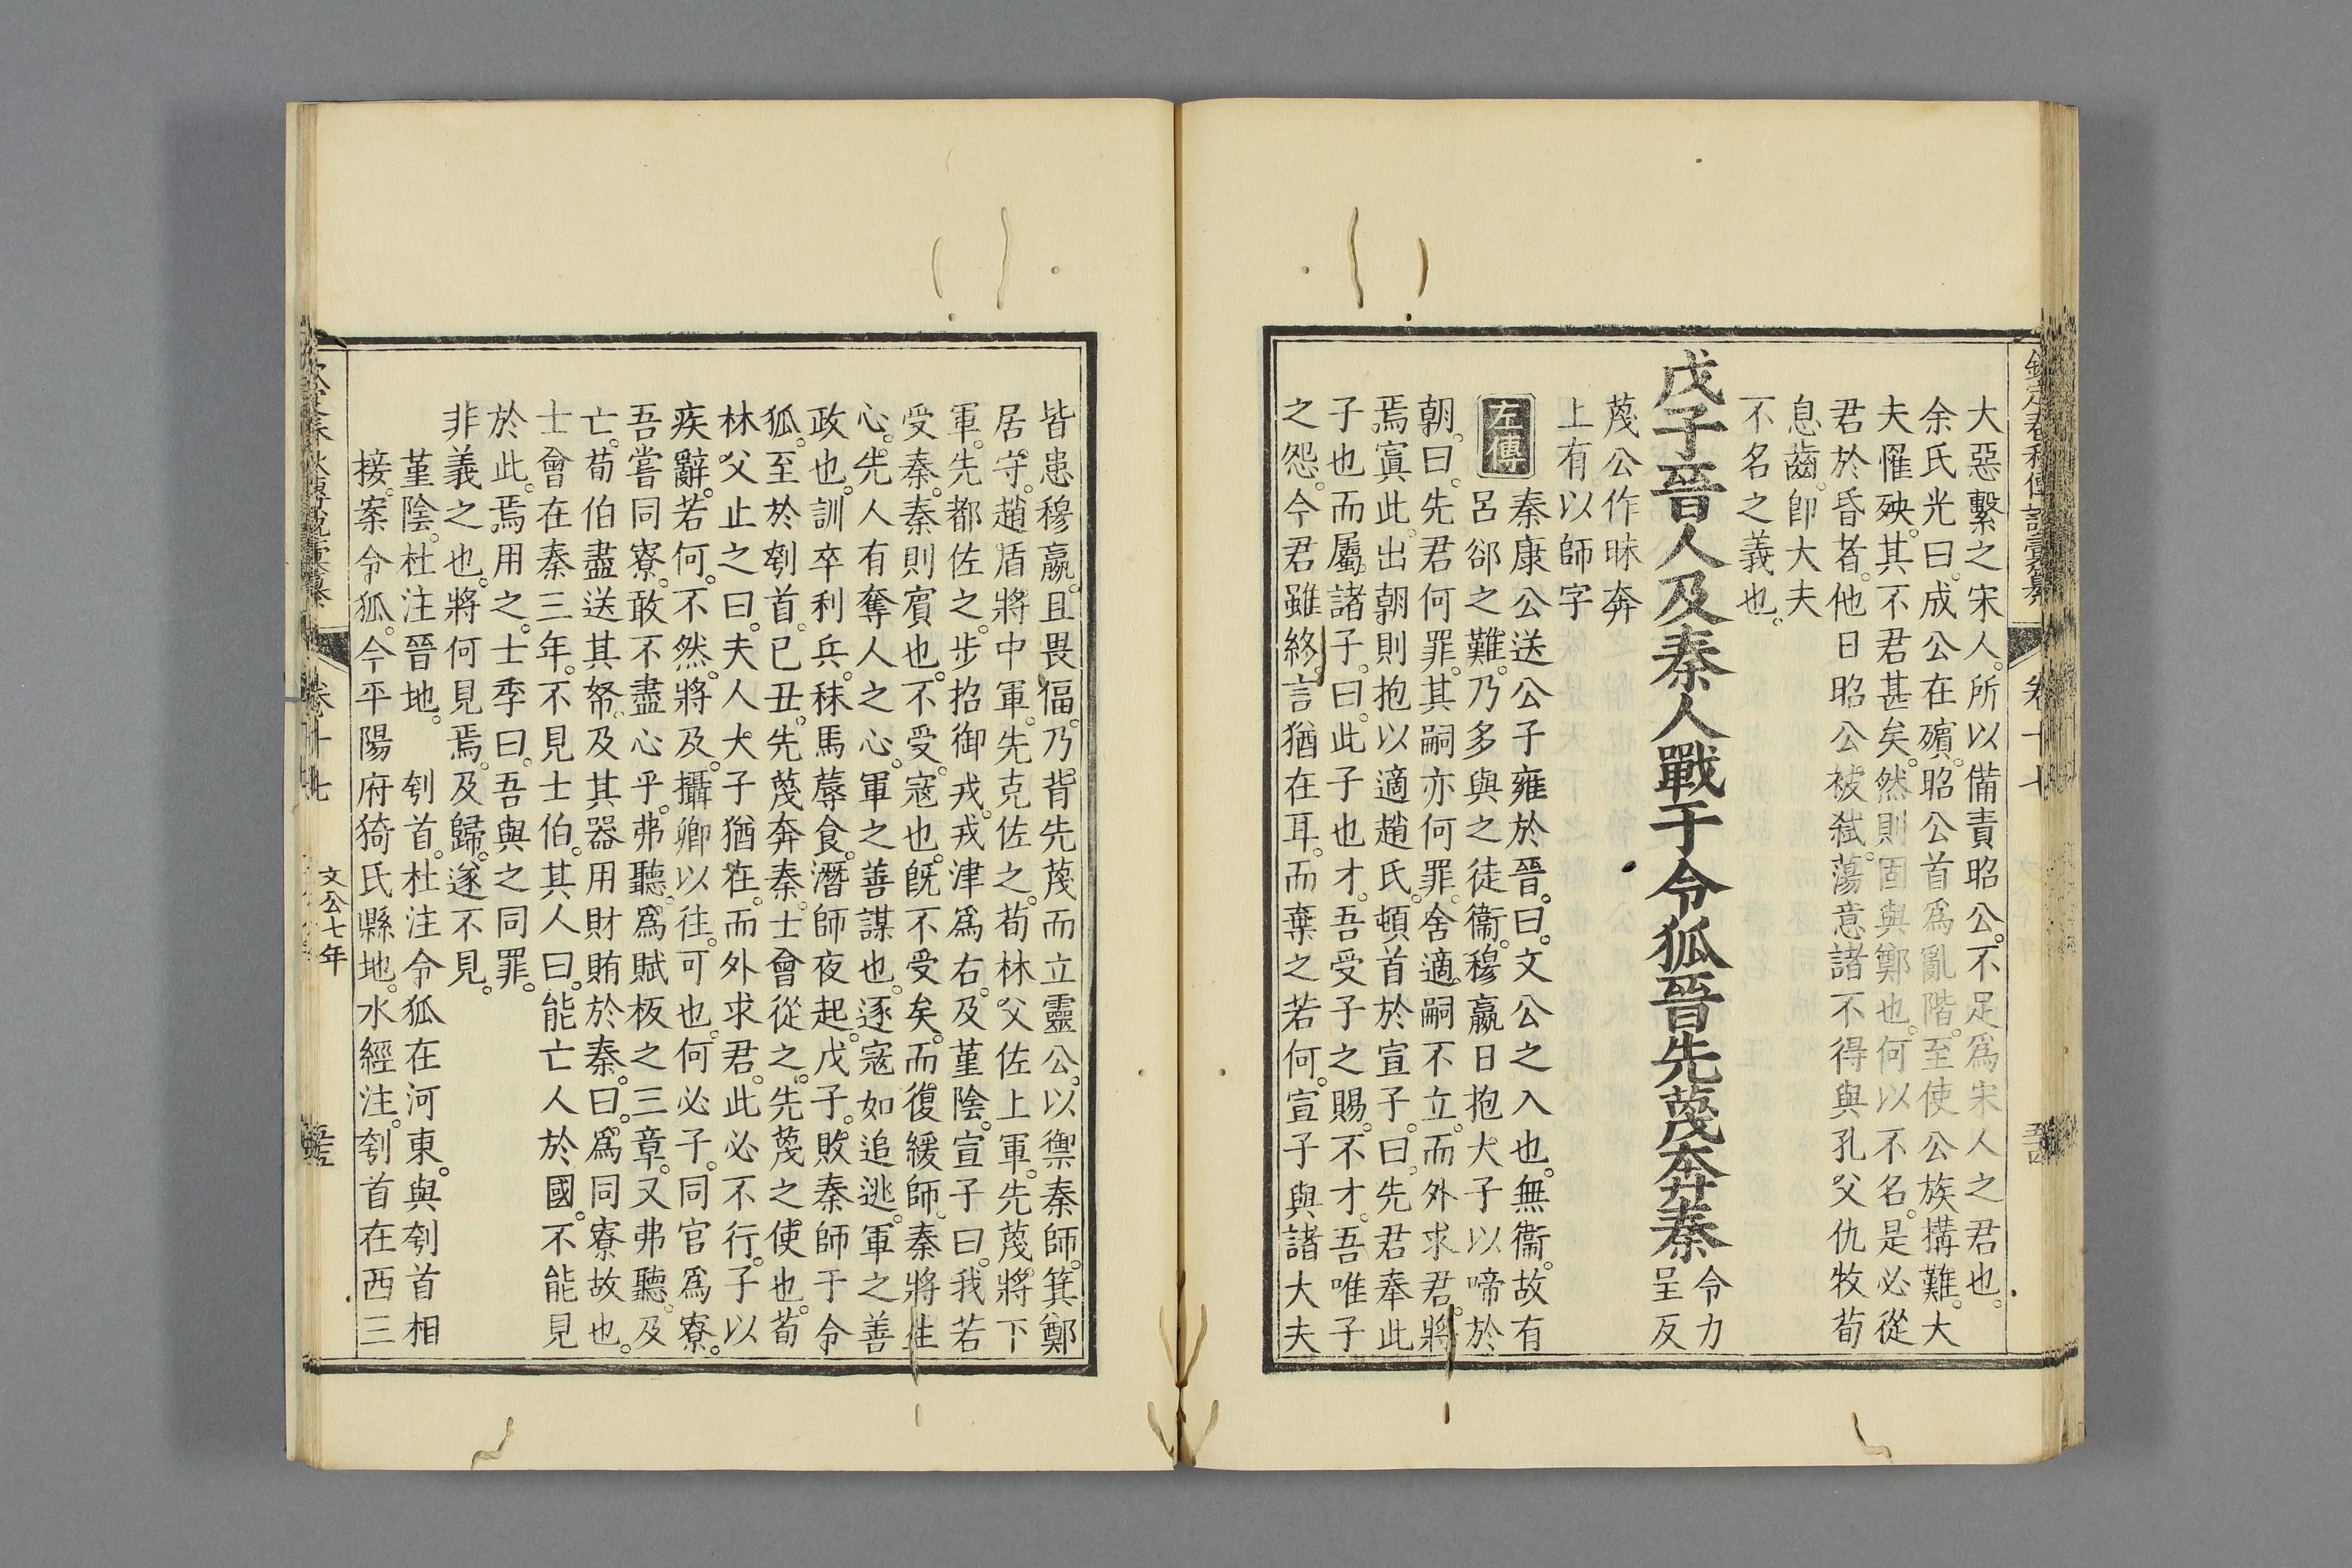 大惡繫之宋人。所以備責昭公。不足爲宋人之君也。
余氏光曰。成公在殯。昭公首爲亂階。至使公族搆難。大
夫罹殃。其不君甚矣。然則固與鄭也。何以不名。是必從
君於昏者。他日昭公被弑。蕩意諸不得與孔父仇牧荀
息齒。卽大夫
不名之義也。
戊子晉人及秦人戰于令狐晉先蔑奔秦
令力
呈反
蔑公作昧奔
上有以師字
左傳
秦康公送公子雍於晉。曰。文公之入也。無衞。故有
呂郤之難。乃多與之徒衞。穆嬴日抱大子以啼於
朝。曰。先君何罪。其嗣亦何罪。舍適嗣不立。而外求君。將
焉寘此。出朝則抱以適趙氏。頓首於宣子。曰。先君奉此
子也而屬諸子。曰。此子也才。吾受子之賜。不才。吾唯子
之怨。今君雖終。言猶在耳。而棄之若何。宣子與諸大夫
皆患穆嬴。且畏偪。乃背先蔑而立靈公。以禦秦師。箕鄭
居守。趙盾將中軍。先克佐之。荀林父佐上軍。先蔑將下
軍。先都佐之。步招御戎。戎津爲右。及堇陰。宣子曰。我若
受秦。秦則賓也。不受。寇也。旣不受矣。而復緩師。秦將生
心。先人有奪人之心。軍之善謀也。逐寇如追逃。軍之善
政也。訓卒利兵。秣馬蓐食。潛師夜起。戊子。敗秦師于令
狐。至於刳首。已丑。先蔑奔秦。士會從之。先蔑之使也。荀
林父止之曰。夫人大子猶在。而外求君。此必不行。子以
疾辭。若何。不然。將及。攝卿以往。可也。何必子。同官爲寮。
吾嘗同寮。敢不盡心乎。弗聽。爲賦板之三章。又弗聽。及
亡。荀伯盡送其帑。及其器用財賄於秦。曰。爲同寮故也。
士會在秦三年。不見士伯。其人曰。能亡人於國。不能見
於此。焉用之。士季曰。吾與之同罪。
非義之也。將何見焉。及歸。遂不見。
堇陰。杜注晉地。刳首。杜注令狐在河東。與刳首相
接。案令狐。今平陽府猗氏縣地。水經注。刳首在西三
卷十七
文公七年